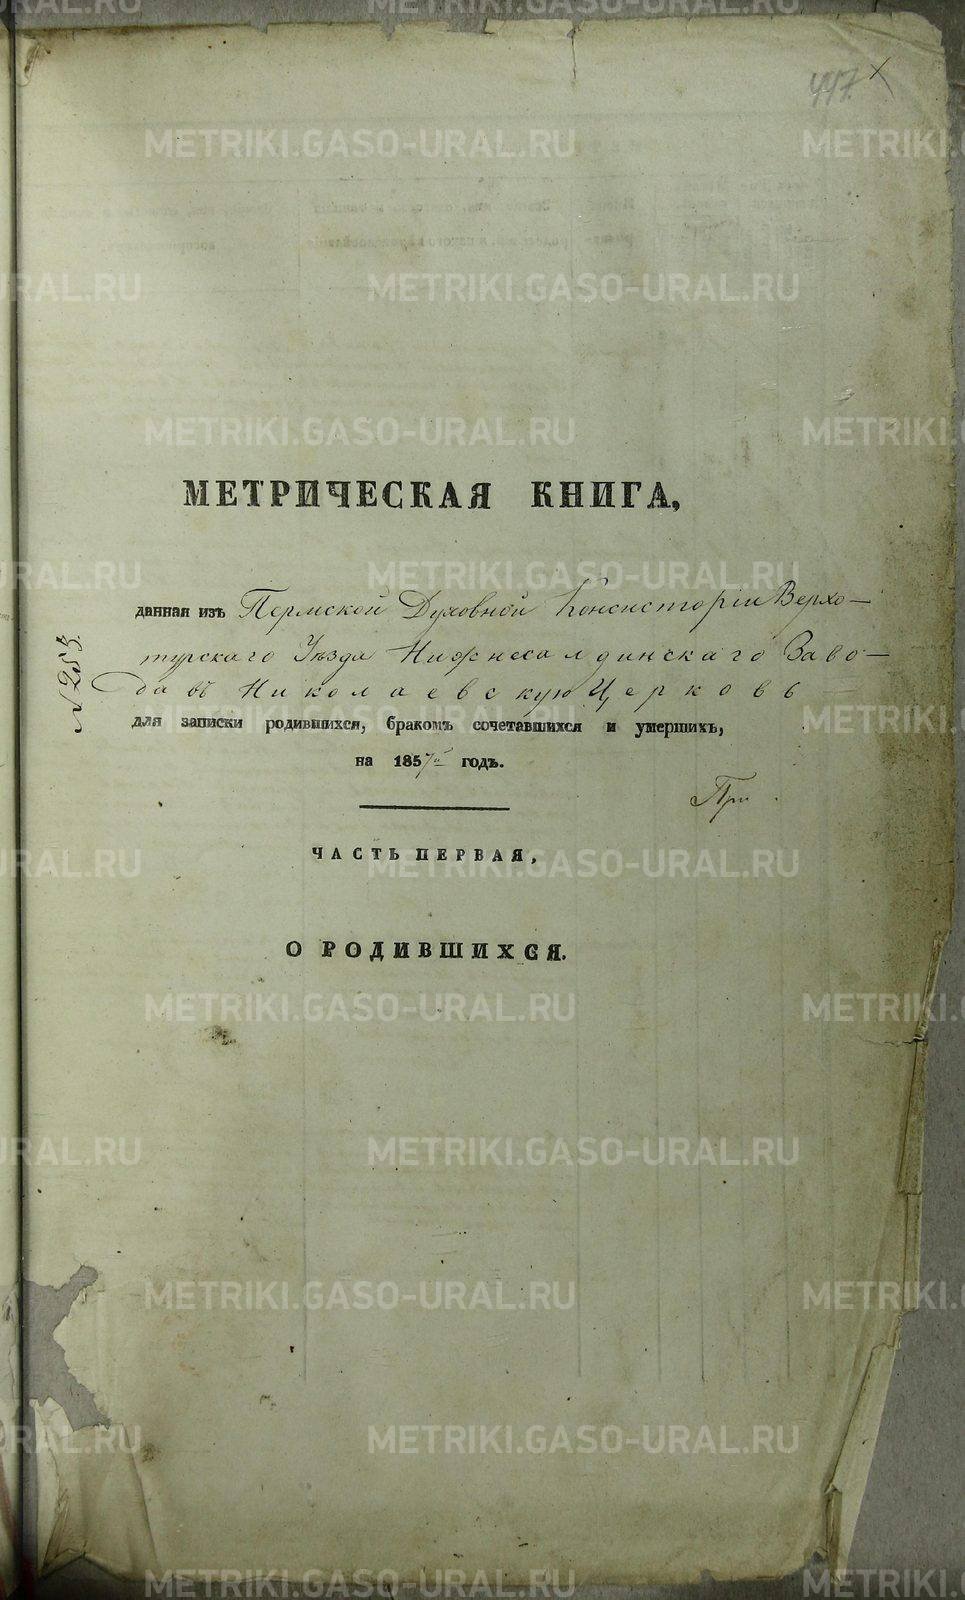 447.
МЕТРИЧЕСКАЯ КНИГА,
данная изъ Пермской Духовной Консисторіи Верхо-
турскаго Уѣзда Нижнесалдинскаго Заво-
да въ Николаевскую Церковь
№ 253.
для записки родившихся, бракомъ сочетавшихся и умершихъ,
на 1857й годъ.
При
ЧАСТЬ ПЕРВАЯ,
О РОДИВШИХСЯ.
METRIKI.GASO-URAL.RU